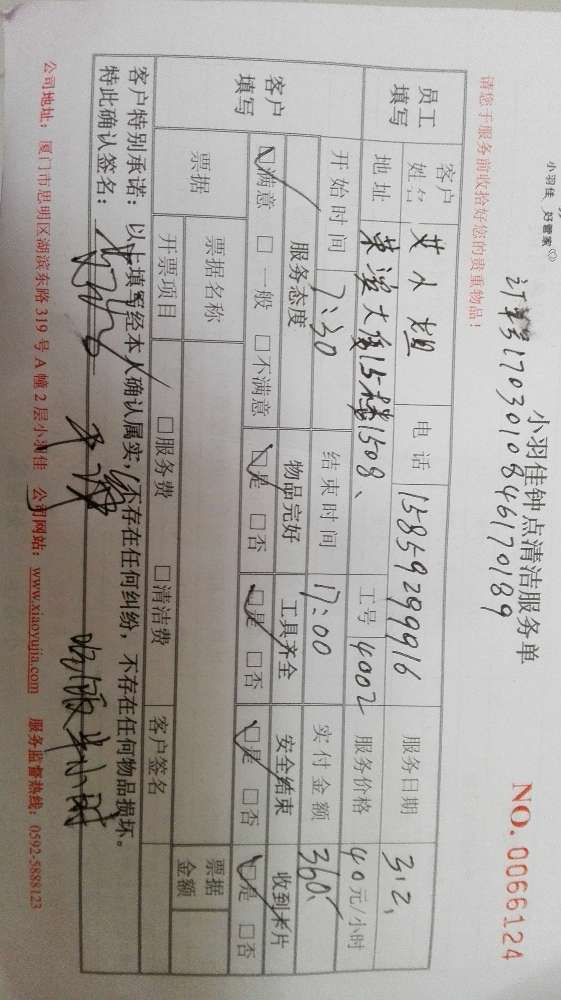 小羽佳 好管家
请您于服务前收拾好您的贵重物品！
订单号1703010846170189
小羽佳钟点清洁服务单
NO. 0066124
员工填写
客户姓名 艾小姐 电话 15859299916 服务日期 3.2.
地址 东渡大厦15楼1508、 工号 4002 服务价格 40元/小时
客户填写
开始时间 7:30 结束时间 17:00 实付金额 360
服务态度 物品完好 工具齐全 安全结束 收到卡片
☑满意 □一般 □不满意 ☑是 □否 ☑是 □否 ☑是 □否 ☑是 □否
票据 票据名称 票据金额
开票项目 □服务费 □清洁费 客户签名
客户特别承诺：以上填写经本人确认属实，不存在任何纠纷，不存在任何物品损坏。
特此确认签名： 半小时
公司地址：厦门市思明区湖滨东路319号A幢2层小羽佳 公司网站：www.xiaoyujia.com 服务监督热线：0592-5888123